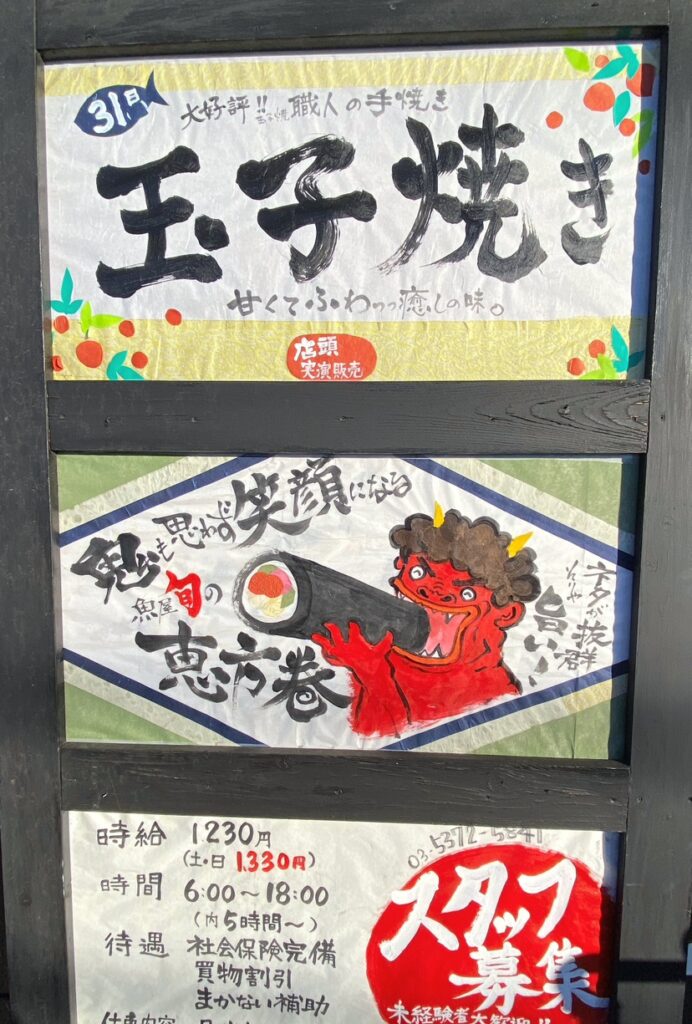 31日
大好評!! 玉子焼職人の手焼き
玉子焼き
甘くてふわっっ癒しの味。
店頭
実演販売
鬼も思わず笑顔になる
魚屋旬の
恵方巻
ネタが抜群
そりゃ
旨い!
時給 1230円
(土・日 1.330円)
時間 6:00〜18:00
(内5時間〜)
待遇 社会保険完備
買物割引
まかない補助
仕事内容
03-5372-5841
スタッフ
募集
未経験者大歓迎!!